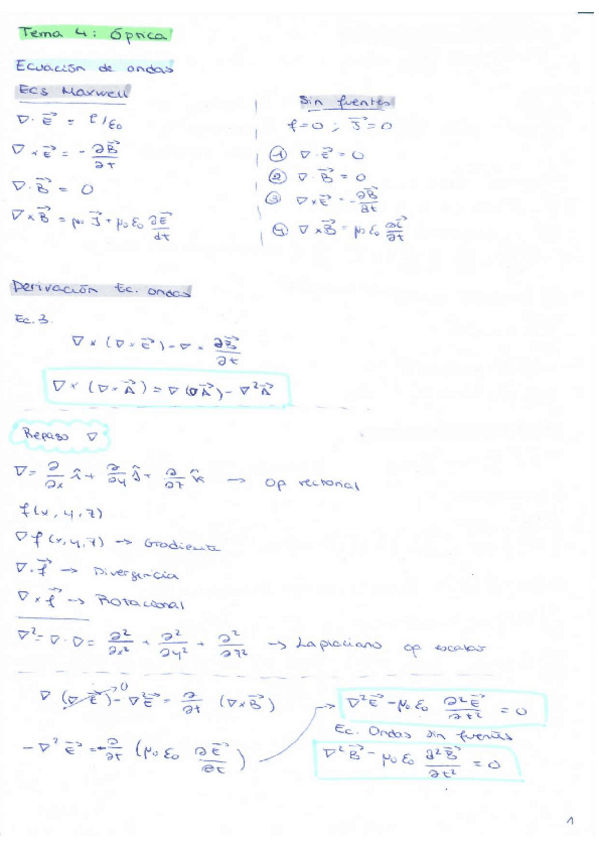 Tema 4: Óptica
Ecuación de ondas
Ecs Maxwell
∇·E⃗ = ρ/ε₀
∇×E⃗ = -∂B⃗/∂t
∇·B⃗ = 0
∇×B⃗ = μ₀ J⃗ + μ₀ ε₀ ∂E⃗/dt
Sin fuentes
ρ=0 ; J⃗=0
① ∇·E⃗ = 0
② ∇·B⃗ = 0
③ ∇×E⃗ = -∂B⃗/∂t
④ ∇×B⃗ = μ₀ ε₀ ∂E⃗/∂t
Derivación Ec. ondas
Ec. 3.
∇×(∇×E⃗) = ∇× ∂B⃗/∂t
∇×(∇×A⃗) = ∇(∇A⃗) - ∇²A⃗
Repaso ∇
∇ = ∂/∂x î + ∂/∂y ĵ + ∂/∂z k̂ → Op vectorial
f(x,y,z)
∇f(x,y,z) → Gradiente
∇·f⃗ → Divergencia
∇×f⃗ → Rotacional
∇² = ∇·∇ = ∂²/∂x² + ∂²/∂y² + ∂²/∂z² → Laplaciano op escalar
∇(∇E⃗)→0 - ∇²E⃗ = ∂/∂t (∇×B⃗)
-∇²E⃗ = -∂/∂t (μ₀ ε₀ ∂E⃗/∂t)
∇²E⃗ - μ₀ ε₀ ∂²E⃗/∂t² = 0
Ec. Ondas sin fuentes
∇²B⃗ - μ₀ ε₀ ∂²B⃗/∂t² = 0
1